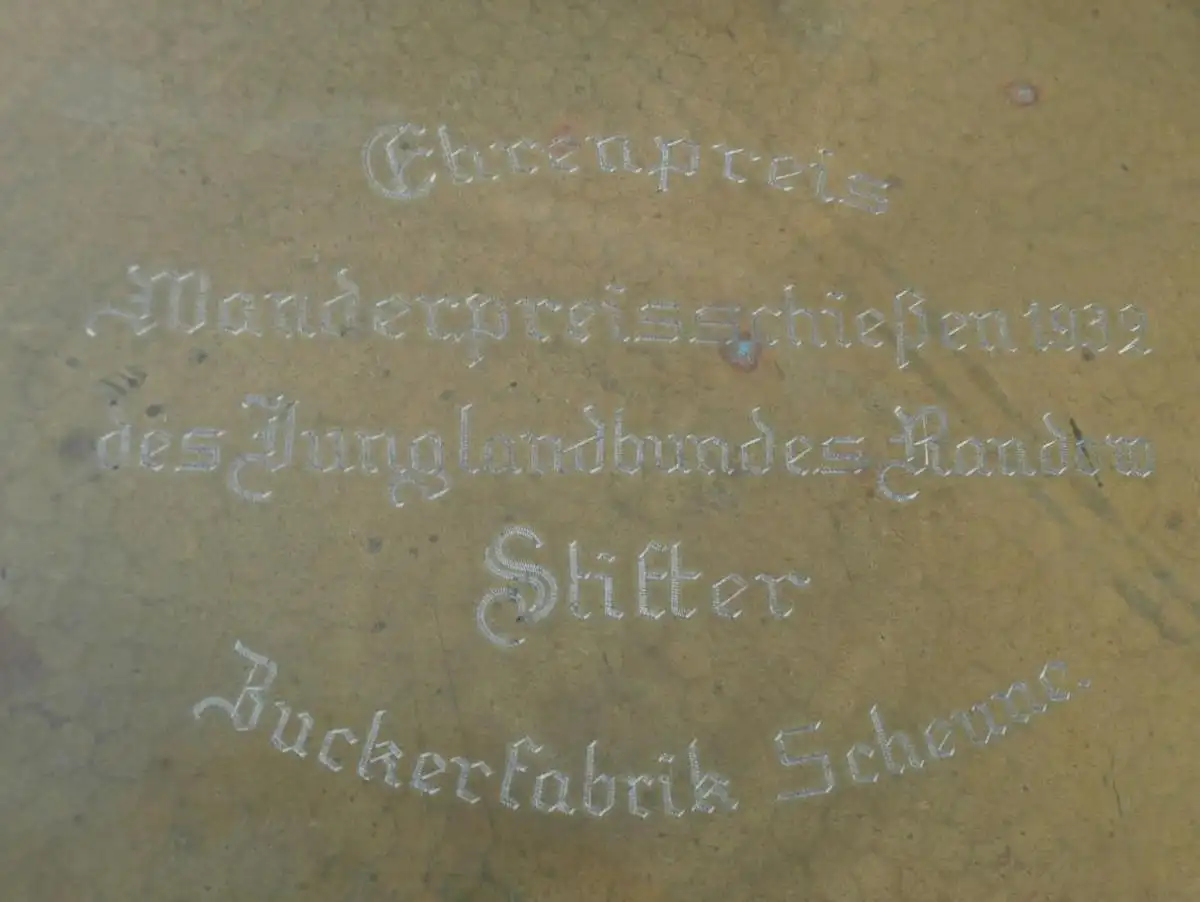 Ehrenpreis
Wanderpreisschießen 1932
des Junglandbundes Randow
Stifter
Zuckerfabrik Scheune.